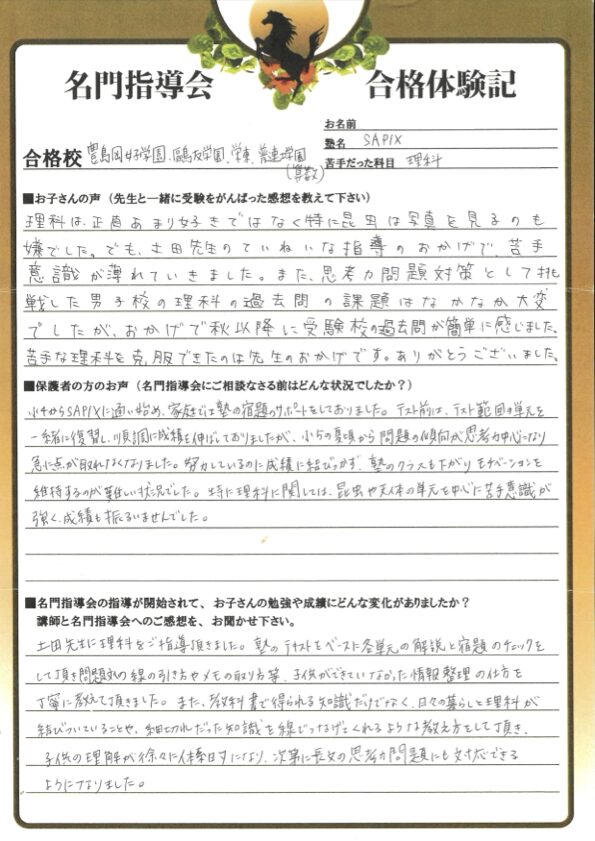 名門指導会 合格体験記
お名前
塾名 SAPIX
合格校 豊島岡女子学園、鷗友学園、栄東、普連土学園(算数)
苦手だった科目 理科
■お子さんの声(先生と一緒に受験をがんばった感想を教えて下さい)
理科は、正直あまり好きではなく特に昆虫は写真を見るのも
嫌でした。でも、土田先生のていねいな指導のおかげで、苦手
意識が薄れていきました。また、思考力問題対策として挑
戦した男子校の理科の過去問の課題はなかなか大変
でしたが、おかげで秋以降に受験校の過去問が簡単に感じました。
苦手な理科を克服できたのは先生のおかげです。ありがとうございました。
■保護者の方のお声(名門指導会にご相談なさる前はどんな状況でしたか?)
小4からSAPIXに通い始め、家庭では塾の宿題のサポートをしておりました。テスト前は、テスト範囲の単元を
一緒に復習し、順調に成績も伸ばしておりましたが、小5の夏頃から問題の傾向が思考力中心になり
急に点が取れなくなりました。努力しているのに成績に結びつかず、塾のクラスも下がりモチベーションを
維持するのが難しい状況でした。特に理科に関しては、昆虫や天体の単元を中心に苦手意識が
強く、成績も振るいませんでした。
■名門指導会の指導が開始されて、お子さんの勉強や成績にどんな変化がありましたか?
講師と名門指導会へのご感想を、お聞かせ下さい。
土田先生に理科をご指導頂きました。塾のテキストをベースに各単元の解説と宿題のチェックを
して頂き問題文の線の引き方やメモの取り方等、子供ができていなかった情報整理の仕方を
丁寧に教えて頂きました。また、教科書で得られる知識だけでなく、日々の暮らしと理科が
結びついていることや、細切れだった知識を線でつなげてくれるような教え方をして頂き、
子供の理解が徐々に体系立てになり、次第に長文の思考力問題にも対応できる
ようになりました。